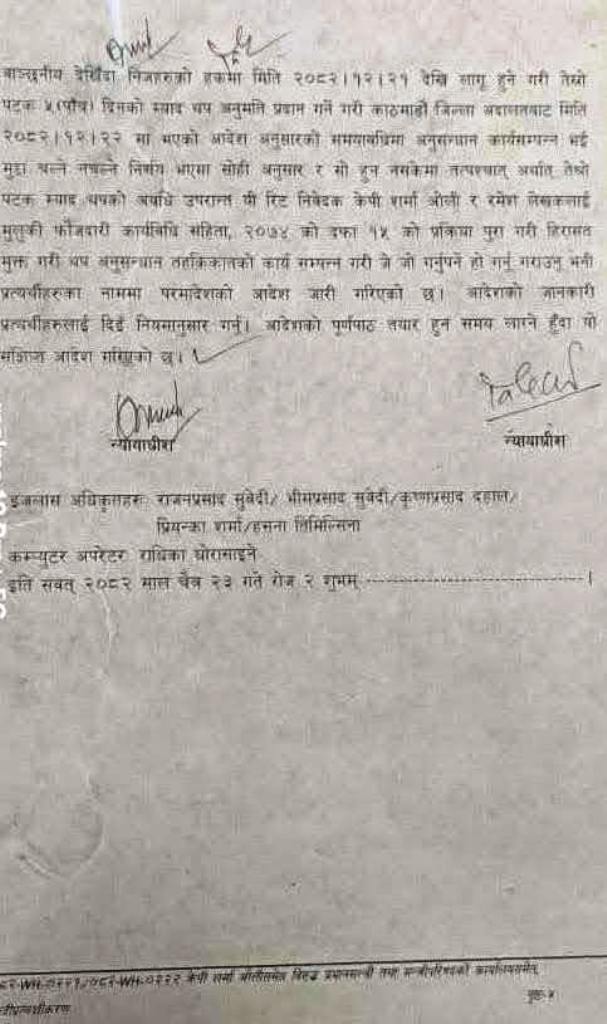 वाञ्छनीय देखिँदा निजहरुको हकमा मिति २०८२।१२।२१ देखि लागू हुने गरी तेस्रो
पटक ५(पाँच) दिनको म्याद थप अनुमति प्रदान गर्ने गरी काठमाडौं जिल्ला अदालतबाट मिति
२०८२।१२।२२ मा भएको आदेश अनुसारको समयावधिमा अनुसन्धान कार्यसम्पन्न भई
मुद्दा चल्ने नचल्ने निर्णय भएमा सोही अनुसार र सो हुन नसकेमा तत्पश्चात् अर्थात् तेस्रो
पटक म्याद थपको अवधि उपरान्त यी रिट निवेदक केपी शर्मा ओली र रमेश लेखकलाई
मुलुकी फौजदारी कार्यविधि संहिता, २०७४ को दफा १५ को प्रक्रिया पुरा गरी हिरासत
मुक्त गरी थप अनुसन्धान तहकिकातको कार्य सम्पन्न गरी जे जो गर्नुपर्ने हो गर्नु गराउनु भनी
प्रत्यर्थीहरुका नाममा परमादेशको आदेश जारी गरिएको छ। आदेशको जानकारी
प्रत्यर्थीहरुलाई दिई नियमानुसार गर्नु। आदेशको पूर्णपाठ तयार हुन समय लाग्ने हुँदा यो
संक्षिप्त आदेश गरिएको छ।
न्यायाधीश
न्यायाधीश
इजलास अधिकृतहरुः राजनप्रसाद सुवेदी/ भीमप्रसाद सुवेदी/कृष्णप्रसाद दहाल/
प्रियन्का शर्मा/हसना तिमिल्सिना
कम्प्युटर अपरेटरः राधिका घोरासाइने
इति संवत् २०८२ साल चैत्र २३ गते रोज २ शुभम् ------------------------------------।
८२-WH-०२२१/०८२-WH-०२२२ केपी शर्मा ओलीसमेत विरुद्ध प्रधानमन्त्री तथा मन्त्रीपरिषदको कार्यालयसमेत
पृष्ठ-४